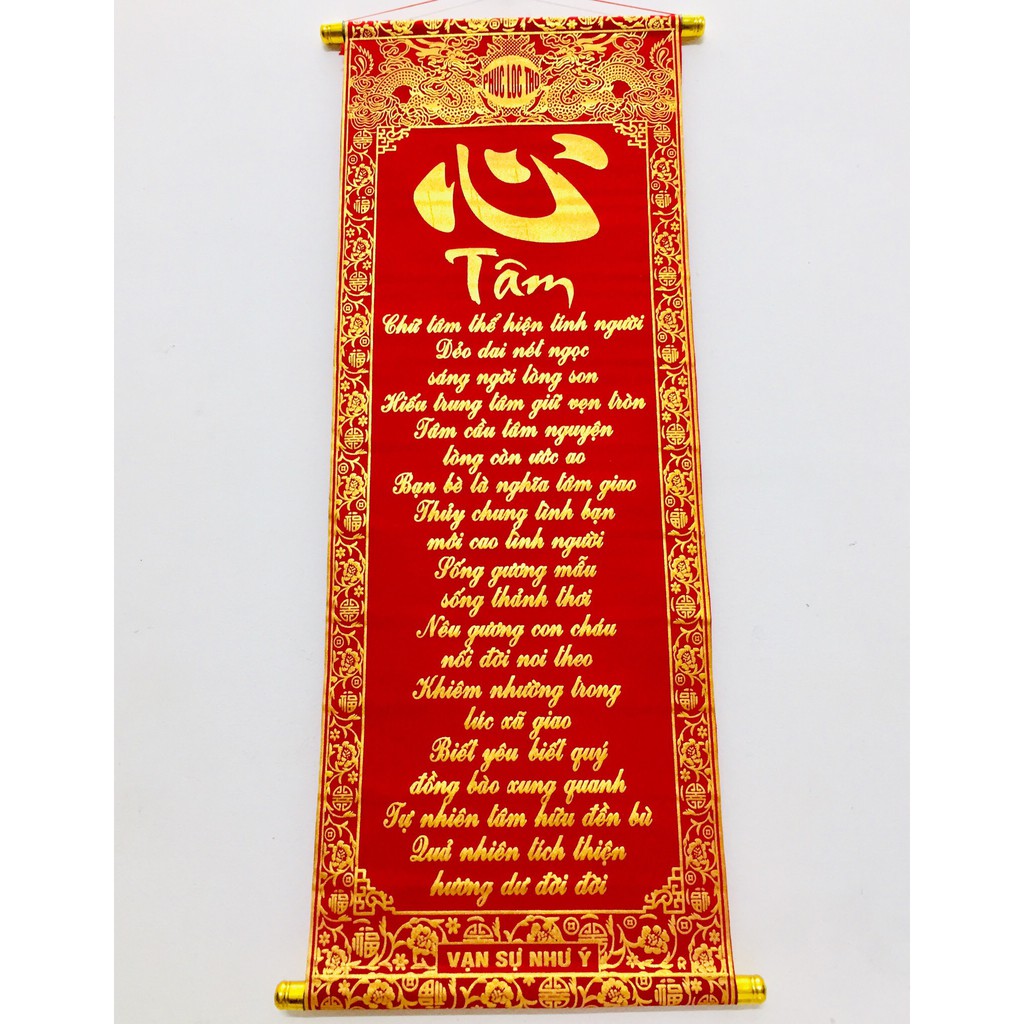 PHÚC LỘC THỌ
心
Tâm
Chữ tâm thể hiện tính người
Dẻo dai nét ngọc
sáng ngời lòng son
Hiếu trung tâm giữ vẹn tròn
Tâm cầu tâm nguyện
lòng còn ước ao
Bạn bè là nghĩa tâm giao
Thủy chung tình bạn
mới cao tình người
Sống gương mẫu
sống thảnh thơi
Nêu gương con cháu
nối đời noi theo
Khiêm nhường trong
lúc xã giao
Biết yêu biết quý
đồng bào xung quanh
Tự nhiên tâm hữu đền bù
Quả nhiên tích thiện
hương dư đời đời
VẠN SỰ NHƯ Ý